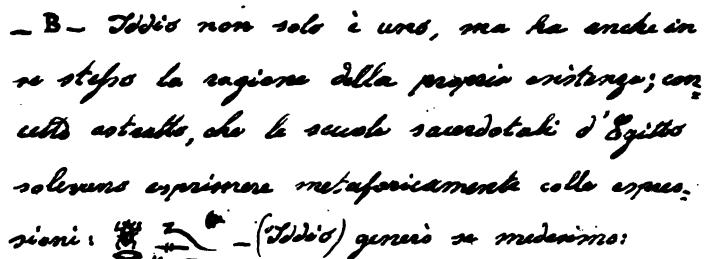 _ B _ Iddio non solo è uno, ma ha anche in
se stesso la ragione della propria esistenza; con=
cetto astratto, che le scuole sacerdotali d'Egitto
solevano esprimere metaforicamente colle espres=
sioni: _ (Iddio) generò se medesimo: